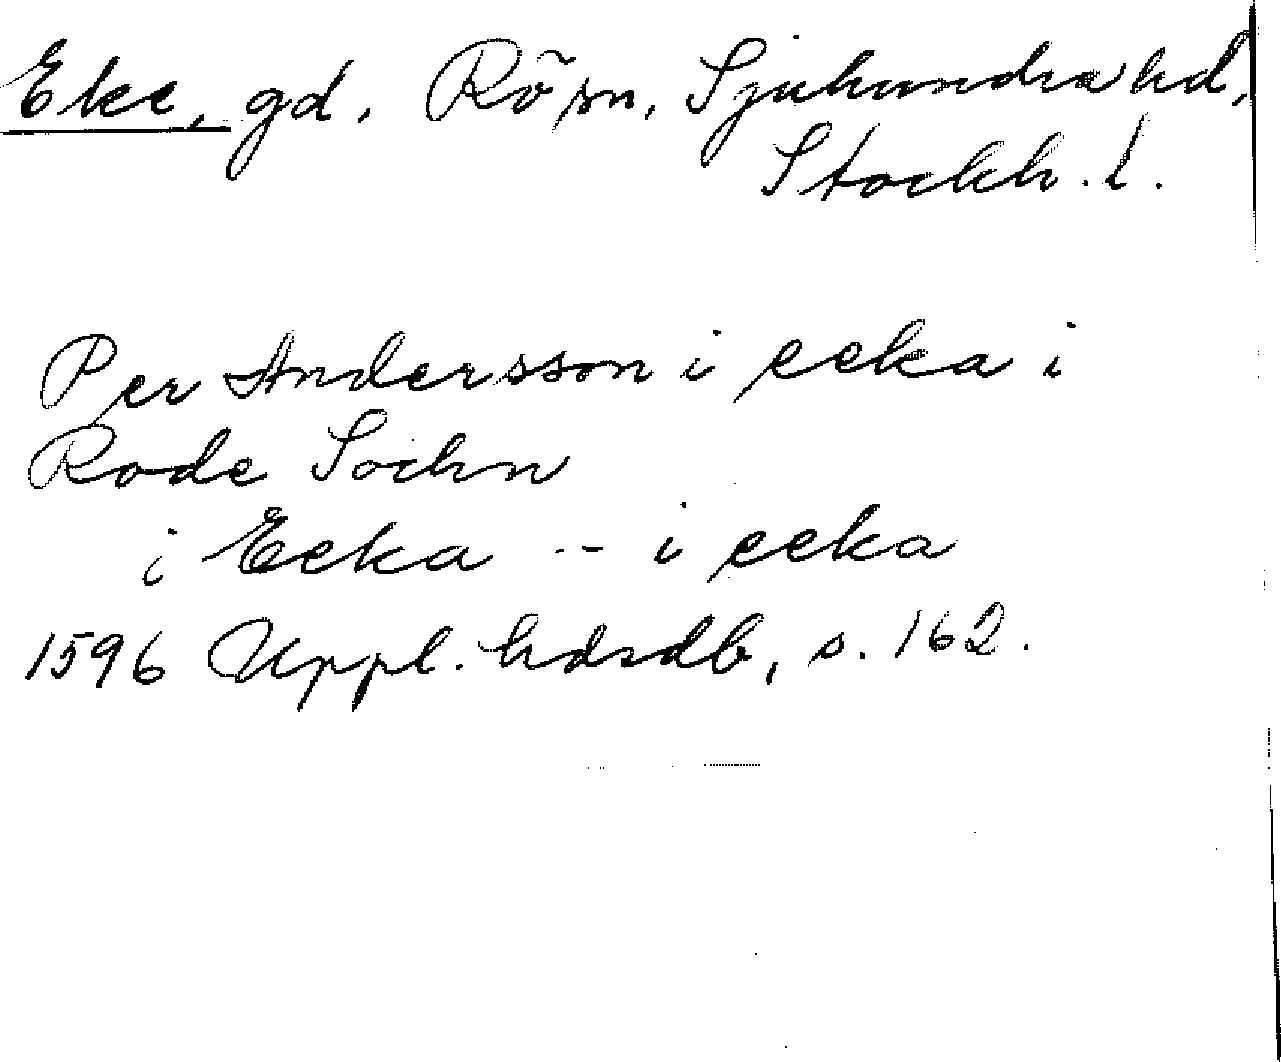 Eke, gd, Rö sn, Sjuhundra hd,
Stockh. l.
Per Andersson i eeka i
Rode Sochn
i Eeka -- i eeka
1596 Uppl. hdsdb, s. 162.